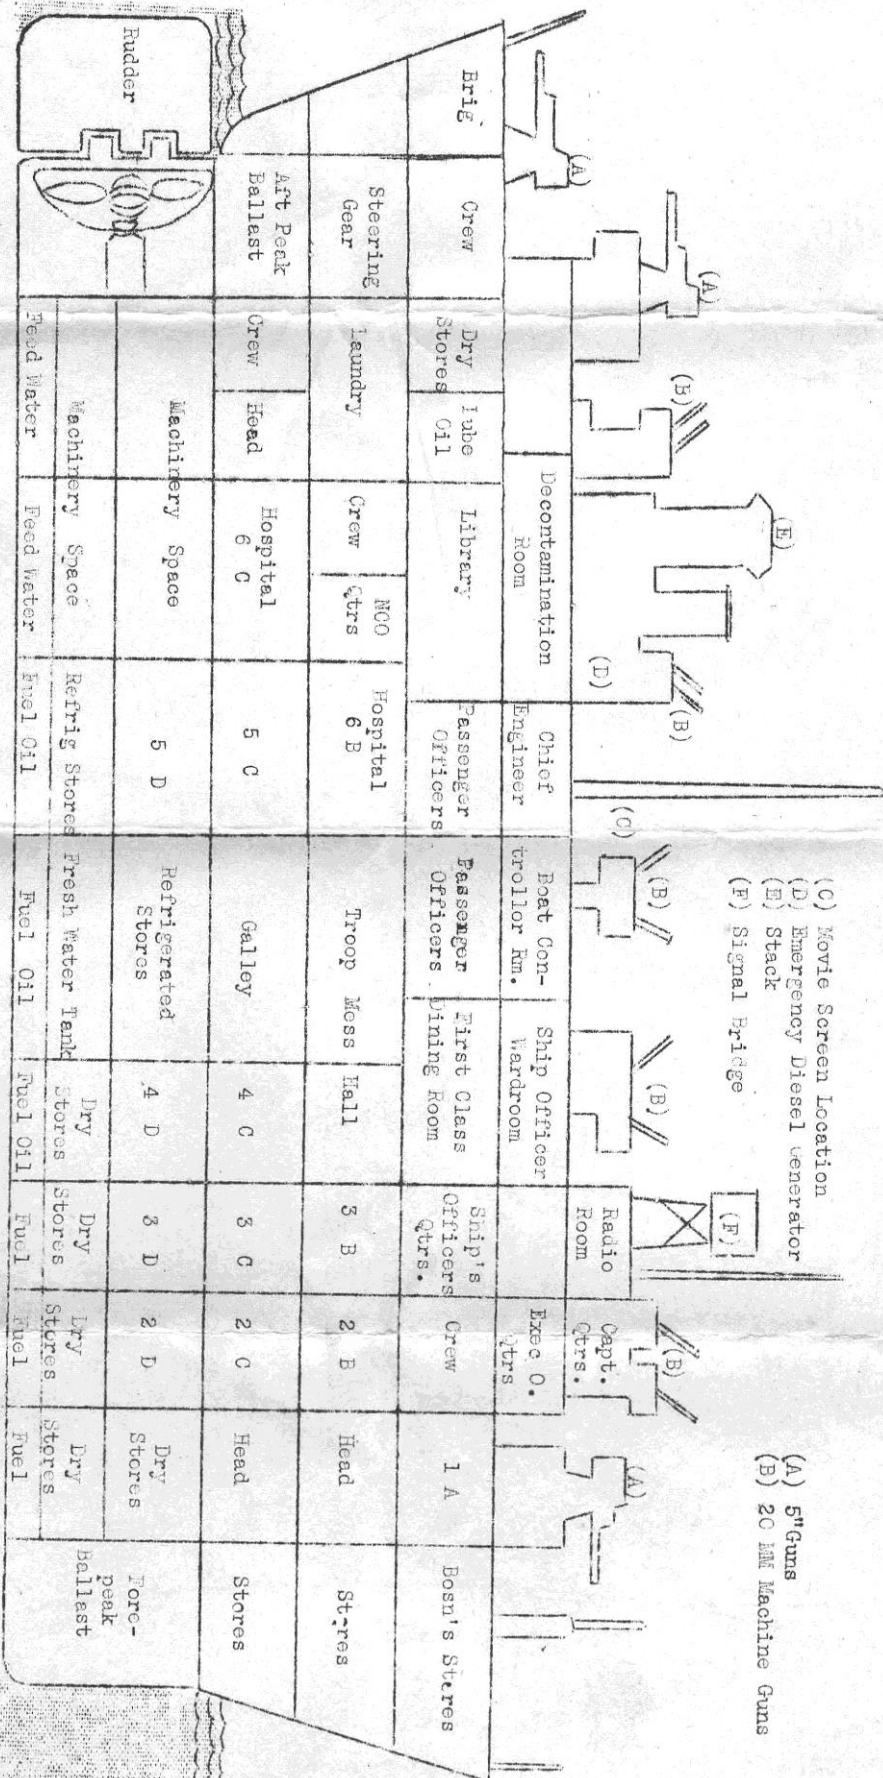 (A) 5"Guns
(B) 20 MM Machine Guns
(C) Movie Screen Location
(D) Emergency Diesel Generator
(E) Stack
(F) Signal Bridge
(A)
(A)
(B)
(E)
(D)
(B)
(C)
(B)
(B)
(F)
(B)
(A)
Radio
Room
Capt.
Qtrs.
Decontamination
Room
Chief
Engineer
Boat Con-
trollor Rm.
Ship Officer
Wardroom
Exec O.
Qtrs
Brig
Crew
Dry
Stores
Lube
Oil
Library
Passenger
Officers
Passenger
Officers
First Class
Dining Room
Ship's
Officers
Qtrs.
Crew
1 A
Bosn's Stores
Steering
Gear
Laundry
Crew
NCO
Qtrs
Hospital
6 B
Troop Mess Hall
3 B
2 B
Head
Stores
Aft Peak
Ballast
Crew
Head
Hospital
6 C
5 C
Galley
4 C
3 C
2 C
Head
Stores
Rudder
Machinery Space
5 D
Refrigerated
Stores
4 D
3 D
2 D
Dry
Stores
Fore-
peak
Ballast
Machinery Space
Refrig Stores
Fresh Water Tank
Dry
Stores
Dry
Stores
Dry
Stores
Dry
Stores
Feed Water
Feed Water
Fuel Oil
Fuel Oil
Fuel Oil
Fuel
Fuel
Fuel